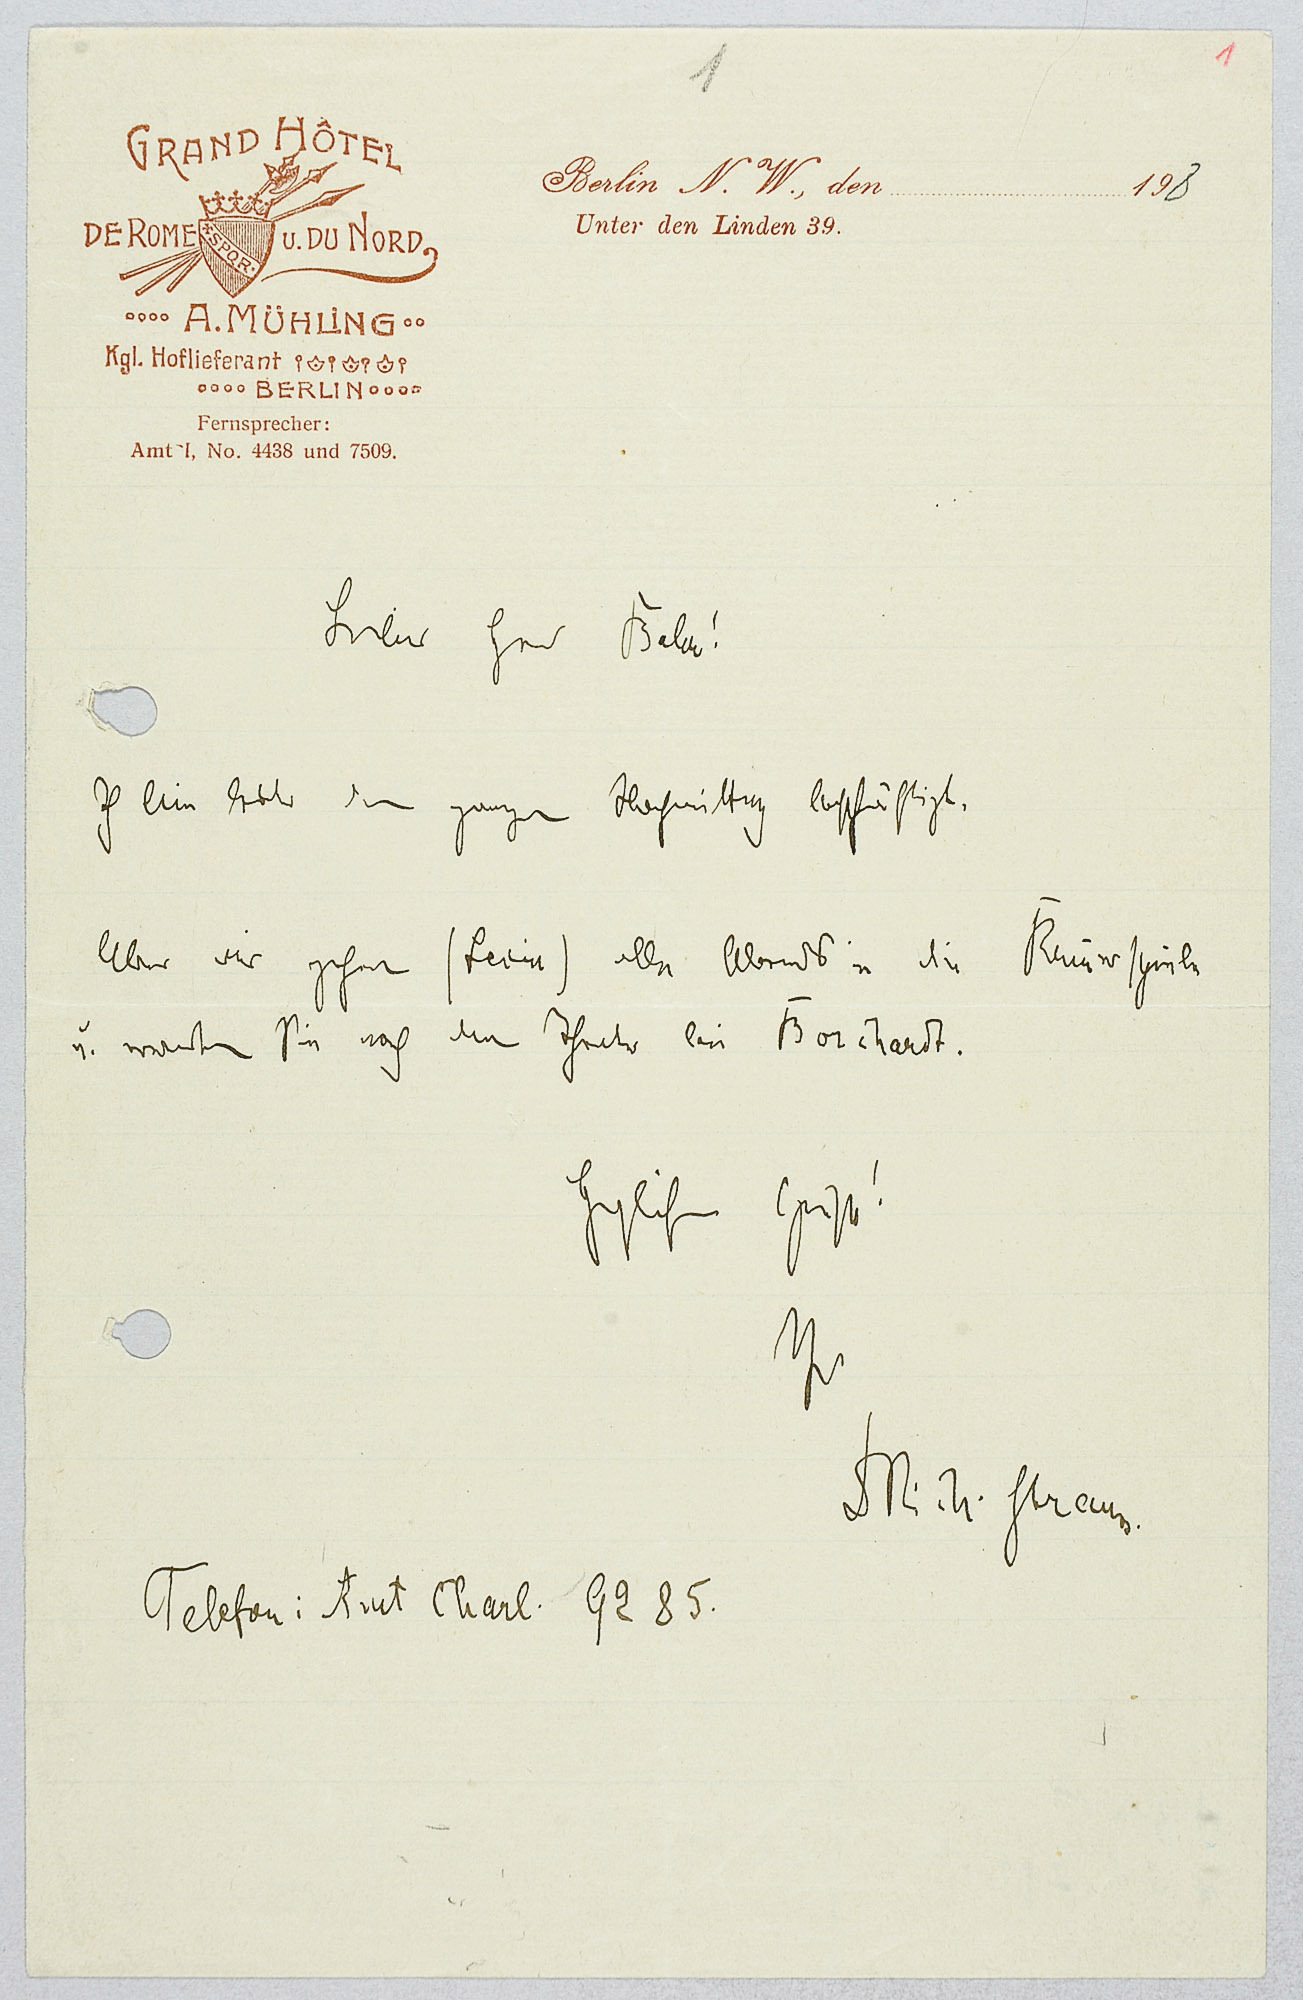 1
1
GRAND HÔTEL
DE ROME U. DU NORD
SPQR
A. MÜHLING
Kgl. Hoflieferant
BERLIN
Fernsprecher:
Amt I, No. 4438 und 7509.
Berlin N. W., den 198
Unter den Linden 39.
Lieber Herr
Ich bin heute den ganzen Nachmittag beschäftigt.
Aber wir gehen alle Abends in die Kammerspiele
u. erwarten Sie nach dem Theater bei Borchardt.
Herzlichen Gruß!
Ihr
DRich. Strauss.
Telefon: Amt Charl. 9285.